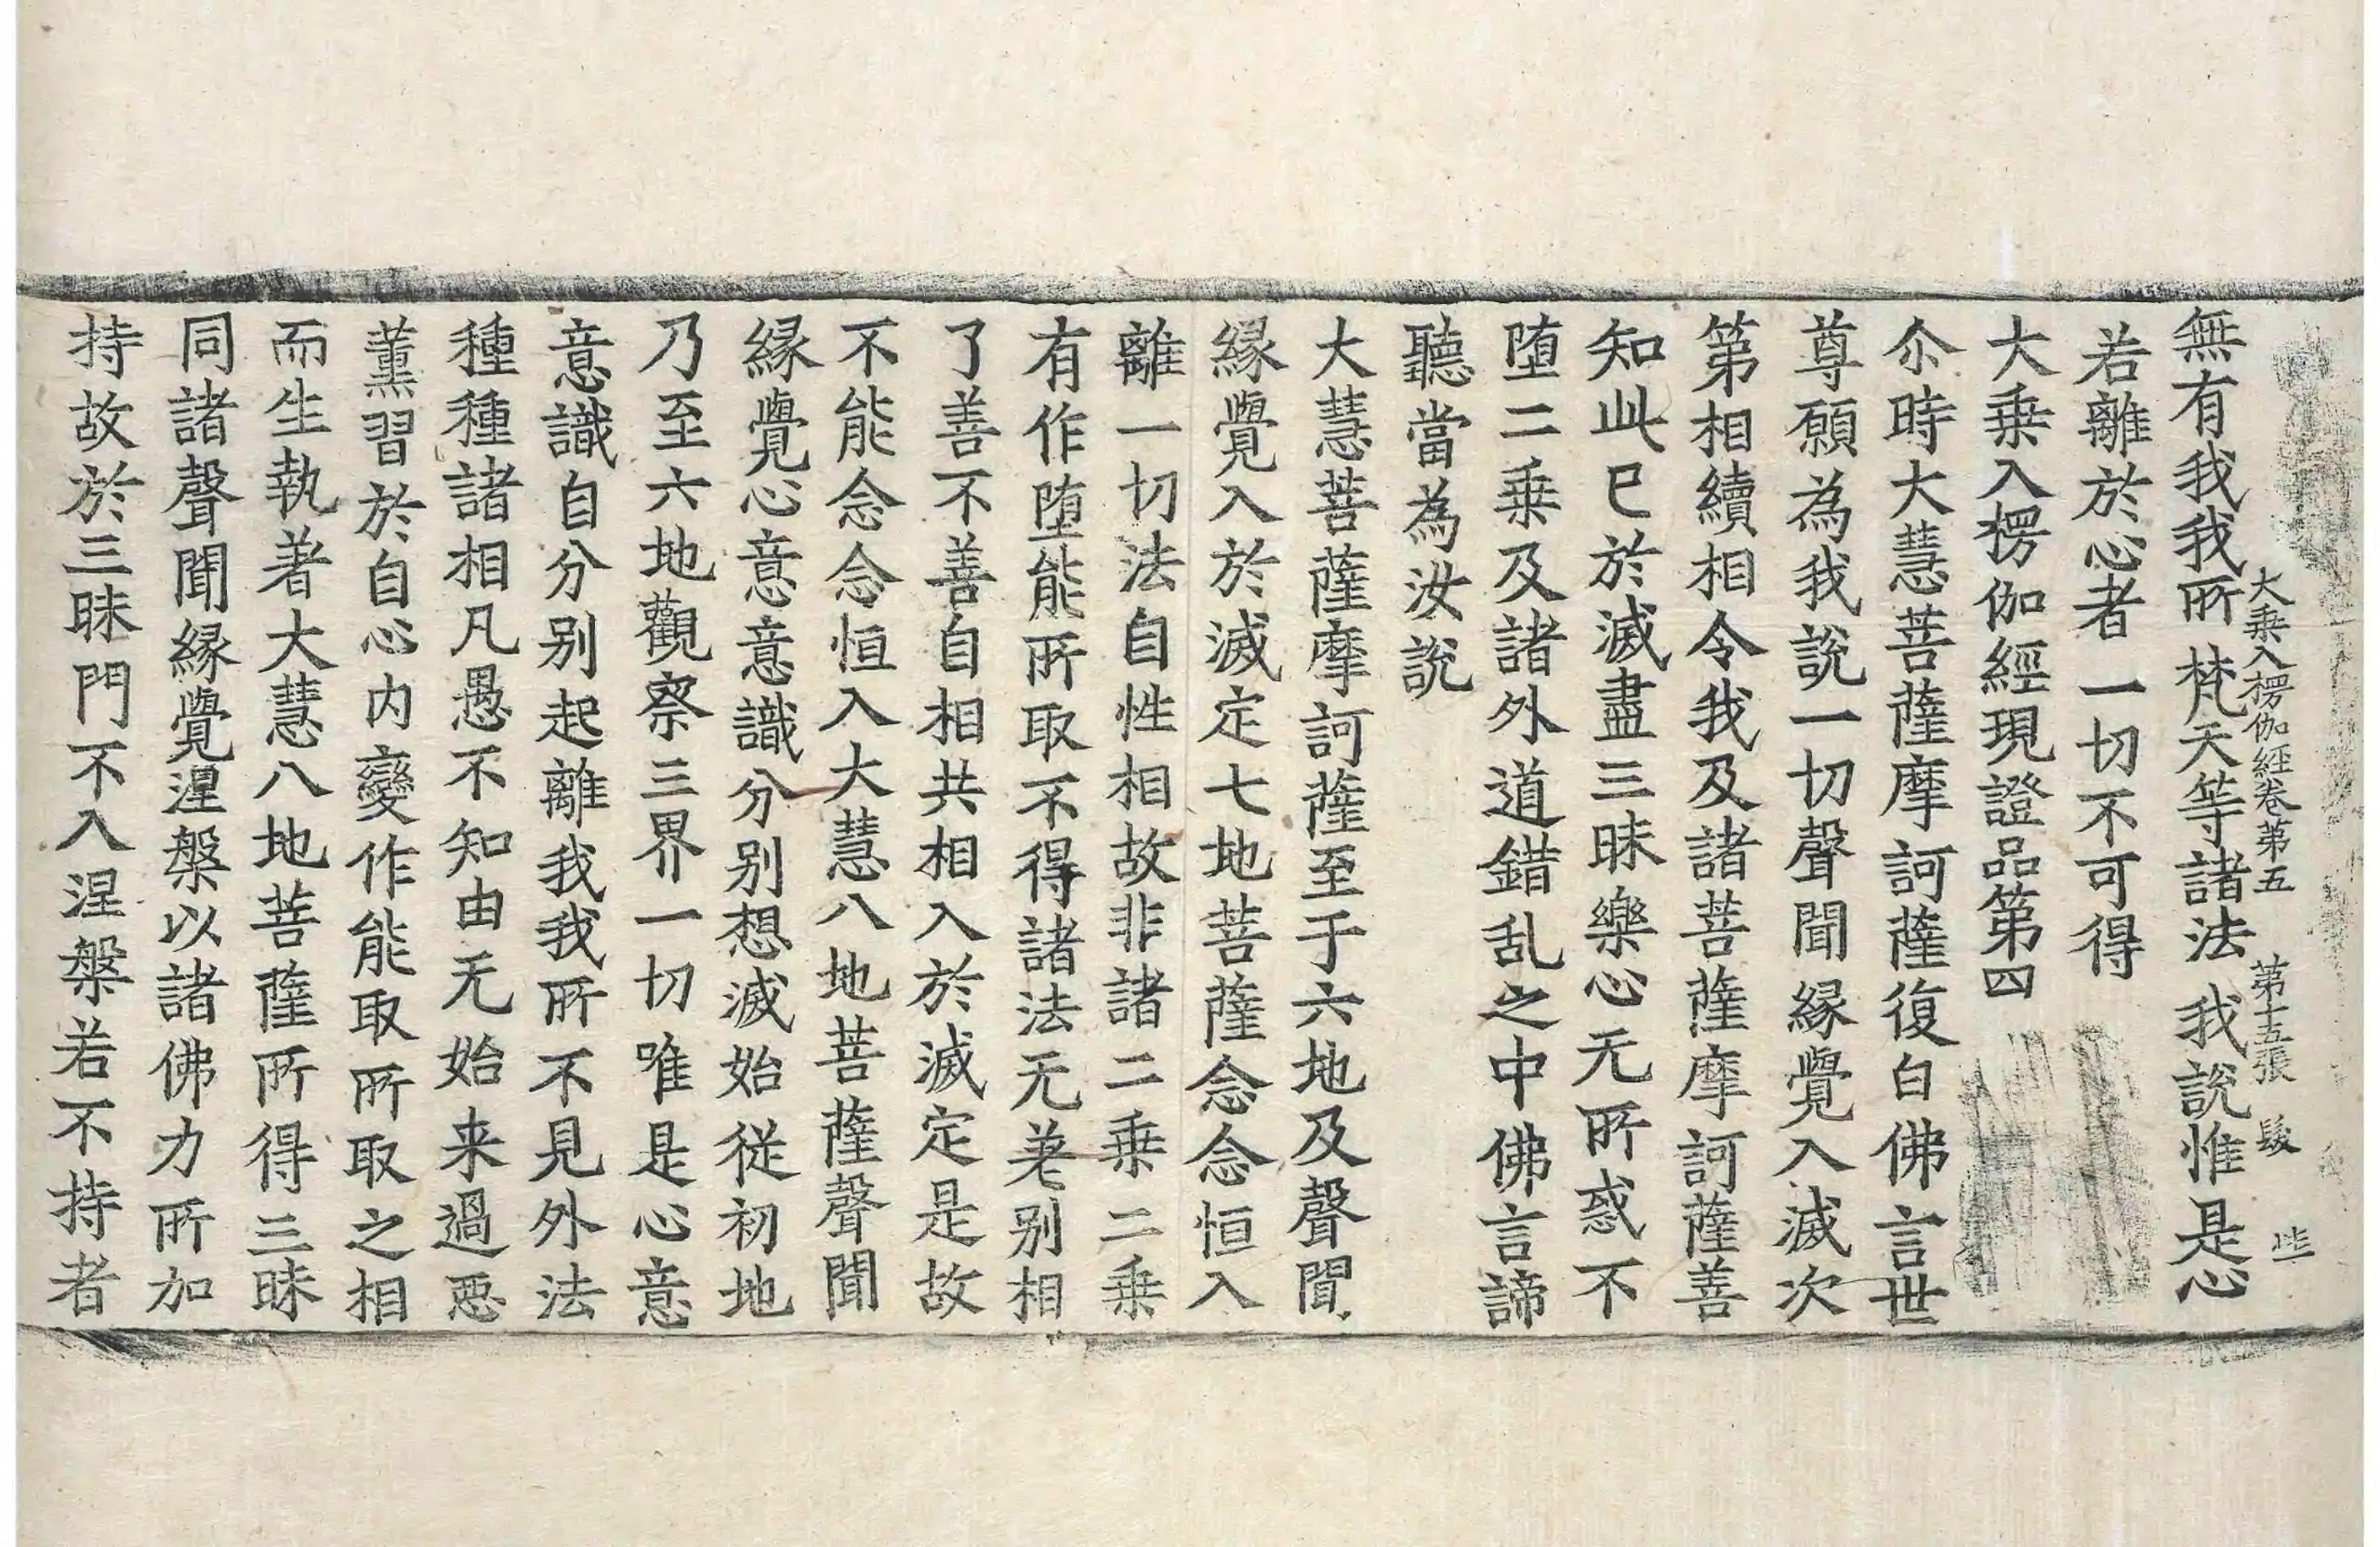 大乗入楞伽経卷第五 第十五張 髮
無有我我所 梵天等諸法 我說惟是心
若離於心者 一切不可得
大乗入楞伽經現證品第四
尒時大慧菩薩摩訶薩復白佛言世
尊願為我說一切聲聞縁覺入滅次
第相續相令我及諸菩薩摩訶薩善
知此已於滅盡三昧樂心无所惑不
堕二乗及諸外道錯乱之中佛言諦
聽當為汝說
大慧菩薩摩訶薩至于六地及聲聞
縁覺入於滅定七地菩薩念念恒入
離一切法自性相故非諸二乗二乗
有作堕能所取不得諸法无差别相
了善不善自相共相入於滅定是故
不能念念恒入大慧八地菩薩聲聞
縁覺心意意識分别想滅始從初地
乃至六地觀察三界一切唯是心意
意識自分别起離我我所不見外法
種種諸相凡愚不知由无始来過恶
薰習於自心内變作能取所取之相
而生執著大慧八地菩薩所得三昧
同諸聲聞縁覺涅槃以諸佛力所加
持故於三昧門不入涅槃若不持者